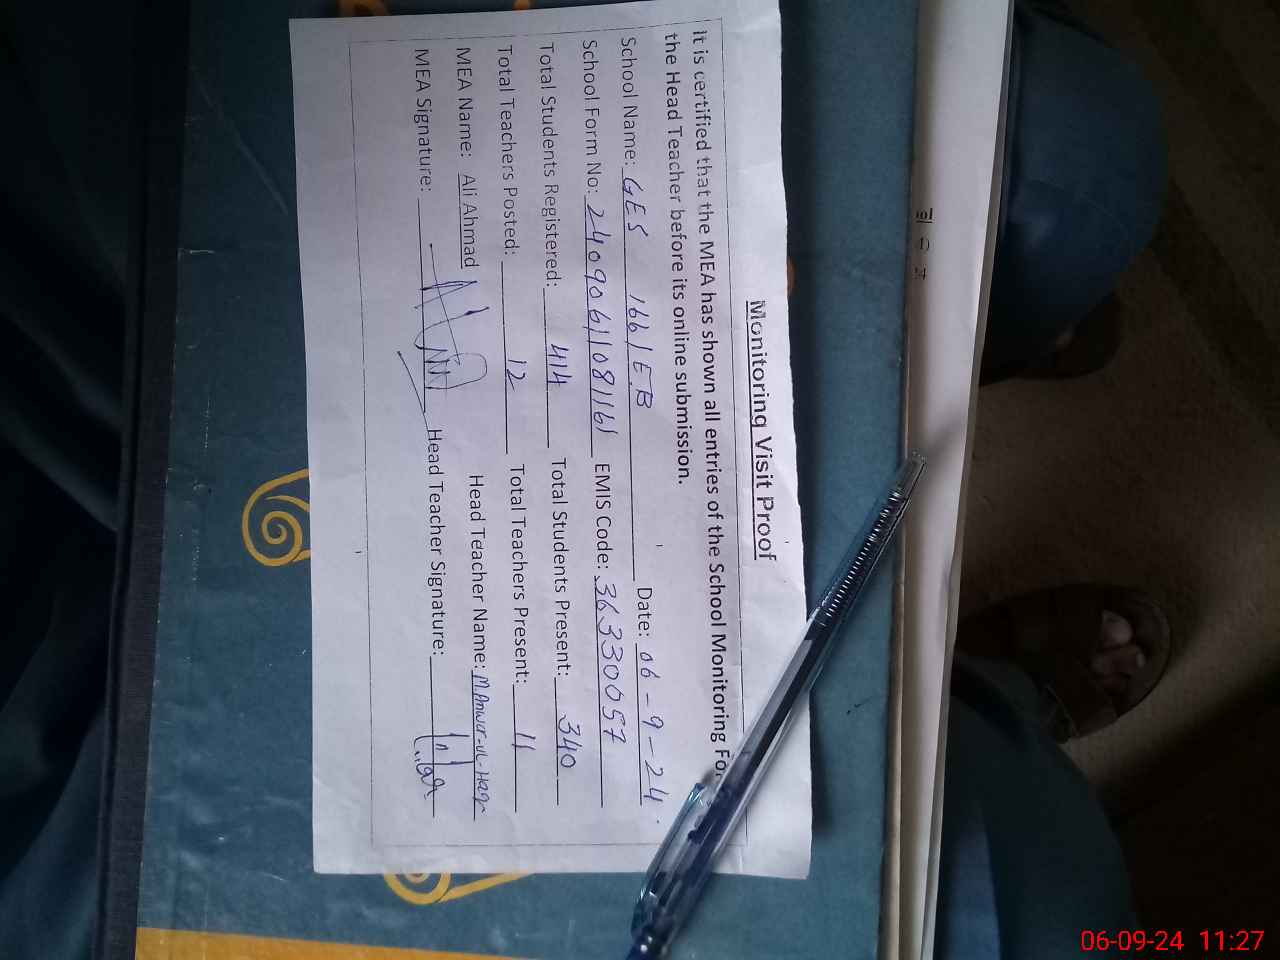 Monitoring Visit Proof
It is certified that the MEA has shown all entries of the School Monitoring For
the Head Teacher before its online submission.
School Name: GES 166/EB Date: 06-9-24.
School Form No: 24090611081161 EMIS Code: 36330057
Total Students Registered: 414 Total Students Present: 340
Total Teachers Posted: 12 Total Teachers Present: 11
MEA Name: Ali Ahmad Head Teacher Name: M.Anwar-ul-Haq
MEA Signature: Head Teacher Signature:
06-09-24 11:27